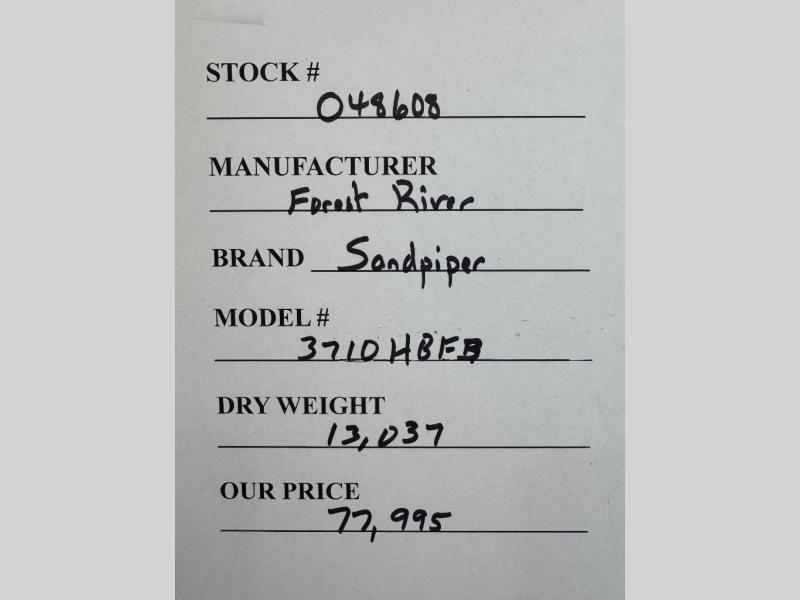 STOCK #
048608
MANUFACTURER
Forest River
BRAND Sandpiper
MODEL #
3710HBFB
DRY WEIGHT
13,037
OUR PRICE
77,995